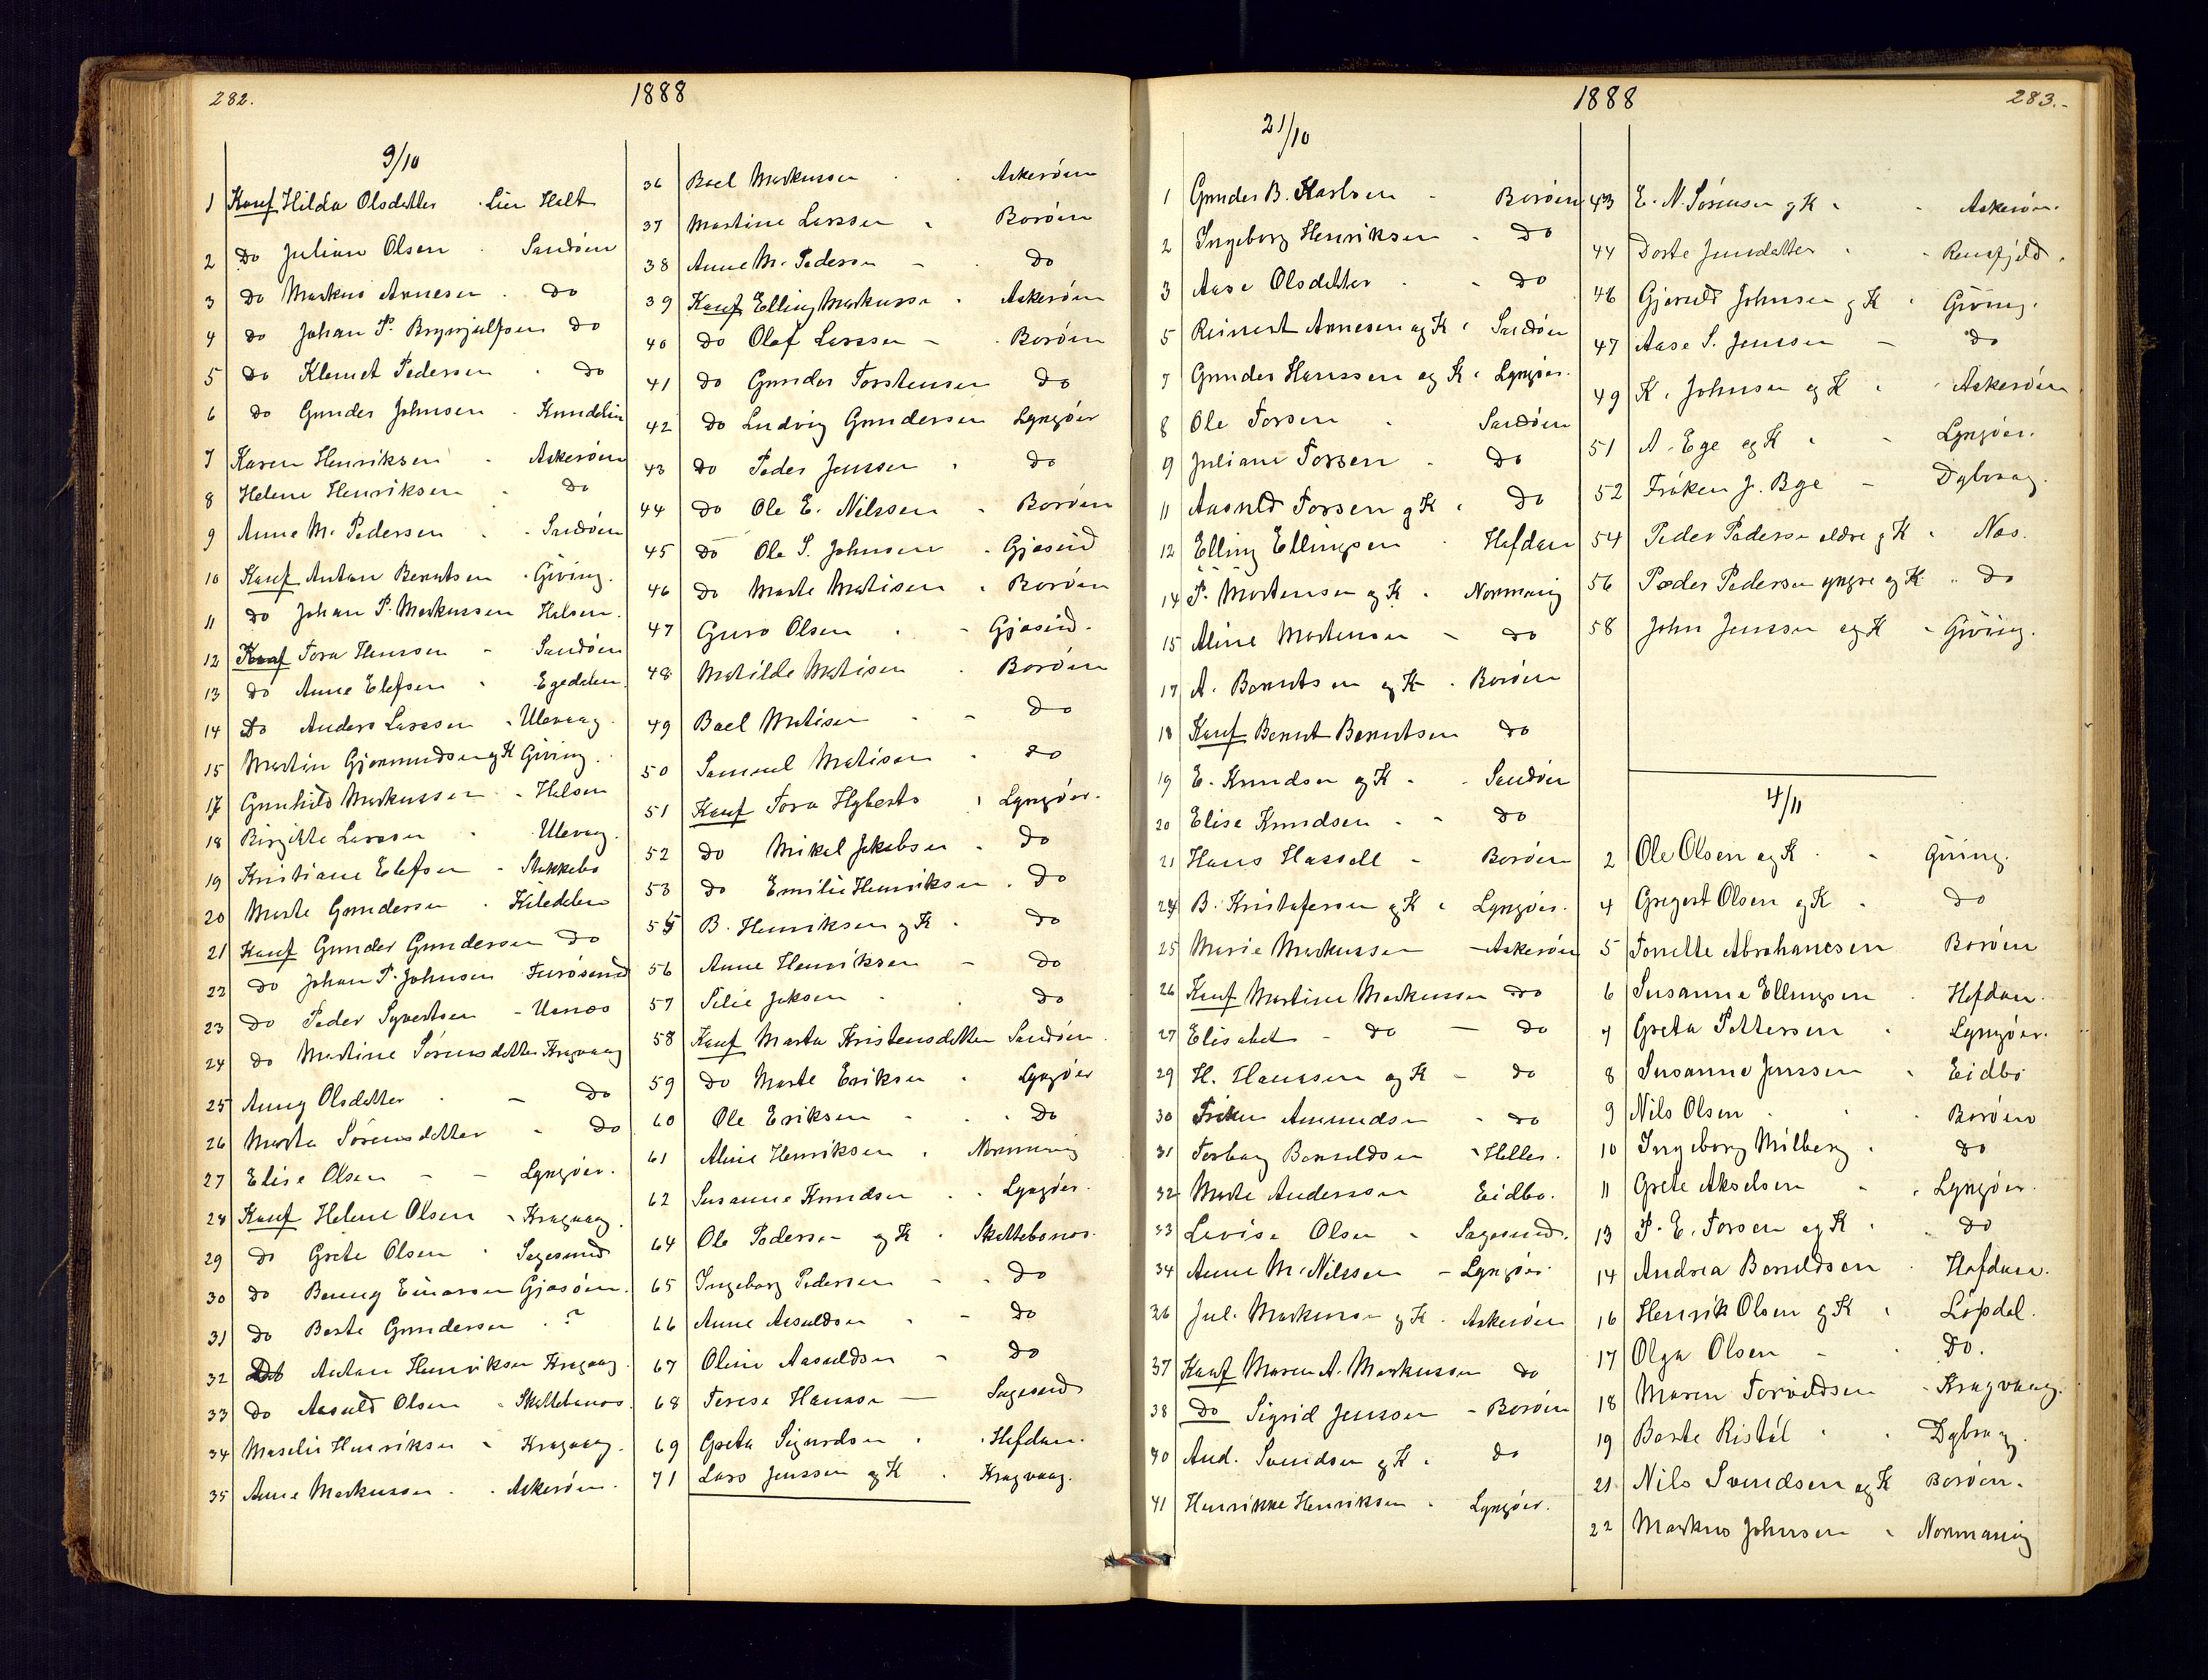 282.
1888
9/10
1 Konf Hilda Olsdatter - Lien Holt
2 Do Julian Olsen - Sandöen
3 Do Markus Arnesen - Do
4 do Johan P. Brynjulfsen Do
5 Do Klemet Pedersen - Do
6 do Gunder Johnsen - Kundelin
7 Karen Henriksen - Askeröen
8 Helene Henriksen - Do
9 Anne M. Pedersen - Sandöen
10 Konf Anton Berntsen - Göving.
11 do Johan P. Markussen Halsen.
12 Konf Tora Hansen - Sandöen
13 do Anne Elefsen - Egedalen
14 Do Anders Larssen - Ulevaag.
15 Martin Gjermundsen og K Göving.
17 Gunhild Markussen - Halsen
18 Birgitte Larssen - Ulevaag.
19 Kristiane Elefsen - Stakkebo
20 Marte Gundersen - Kiledalen
21 Konf Gunder Gundersen Do
22 do Johan P. Johnsen Furösund
23 Do Peder Syvertsen - Usnæs
24 do Martine Sörensdatter Kragvaag
25 Anny Olsdatter - Do
26 Marta Sörensdatter - Do
27 Elise Olsen - - Lyngöer.
28 Konf Helene Olsen - Kragvaag.
29 do Grete Olsen - Sagesund
30 do Benny Einarsen Gjæsöen.
31 do Berte Gundersen - ?
32 Do Anton Henriksen Kragvaag.
33 do Aasuld Olsen - Skattebonæs.
34 Maselie Henriksen - Kragvaag.
35 Anne Markussen - Askeröen.
36 Boel Markussen - Askeröen
37 Martine Larssen - Boröen
38 Anne M. Pedersen - do
39 Konf Elling Markussen - Askeröen
40 do Olaf Larssen - Boröen
41 do Gunder Torstensen do
42 do Ludvig Gundersen Lyngöer
43 do Peder Jenssen - do
44 do Ole E. Nilssen - Boröen
45 do Ole S. Johnsen - Gjæsund
46 do Marte Matisen - Boröen
47 Guro Olsen - Gjæsund.
48 Matilde Matisen - Boröen
49 Boel Matisen - - Do
50 Samuel Matisen - do
51 Konf Tora Hyberts - Lyngöer.
52 do Mikal Jakobsen - Do
53 do Emilie Henriksen - Do
55 B. Henriksen og K - do
56 Anne Henriksen - do
57 Silie Jaksen - do
58 Konf Marta Kristensdatter Sandöen.
59 do Marte Eriksen - Lyngöer
60 Ole Eriksen - do
61 Aline Henriksen - Normanvig
62 Susanne Knudsen - Lyngöer.
64 Ole Pedersen og K - Skattebonæs.
65 Ingeborg Pedersen - - do
66 Anne Aasuldsen - - do
67 Oline Aasuldsen - do
68 Terese Hanssen - Sagesund
69 Greta Sigurdsen - Hefdan.
71 Lars Jenssen og K - Kragvaag.
1888
283.-
21/10
1 Gunder B. Karlsen - Boröen
2 Ingeborg Henriksen - do
3 Aase Olsdatter - - do
5 Reinert Arnesen og K - Sandöen
7 Gunder Hanssen og K - Lyngöer.
8 Ole Torsen - Sandöen
9 Juliane Torsen - Do
11 Aasuld Torsen og K - Do
12 Elling Ellingsen - Hefdan
14 P. Mortensen og K - Normanvig
15 Aline Mortensen - do
17 A. Berntsen og K - Boröen
18 Konf Bernt Berntsen do
19 E. Knudsen og K - Sandöen
20 Elise Knudsen - - do
21 Hans Hassell - Boröen
24 B. Kristofersen og K - Lyngöer.
25 Marie Markussen - Askeröen
26 Konf Martine Markussen do
27 Elisabet - do - do
29 H. Hanssen og K - do
30 Fröken Amundsen - do
31 Torborg Bernuldsen - Helles.
32 Marte Anderssen Eidbo.
33 Lovise Olsen - Sagesund.
34 Anne M. Nilssen - Lyngöer.
36 Jul. Markussen og K. Askeröen
37 Konf Maren A. Markussen do
38 Do Sigrid Jenssen - Boröen
40 And. Svendsen og K - do
41 Henrikke Henriksen - Lyngöer.
43 E. N. Sörensen og K - - Askeröen.
44 Dorte Jensdatter - Rensfjeld.
46 Gjeruld Johnsen og K - Göving.
47 Aase S. Jenssen - do
49 K. Johnsen og K - Askeröen
51 A. Ege og K - - Lyngöer.
52 Fröken J. Bge - Dybvaag.
54 Peder Pedersen eldre og K - Næs.
56 Peder Pedersen yngre og K - do
58 John Jenssen og K - Göving.
4/11
2 Ole Olsen og K - - Göving.
4 Gregert Olsen og K - do
5 Tonette Abrahamsen Boröen
6 Susanne Ellingsen - Hefdan.
7 Greta Pettersen - Lyngöer.
8 Susanne Jenssen - Eidbo
9 Nils Olsen - - Boröen
10 Ingeborg Milberg - do
11 Grete Akselsen - - Lyngöer.
13 P. E. Torsen og K - do
14 Andrea Bernuldsen - Hefdan.
16 Henrik Olsen og K - Löpdal.
17 Olga Olsen - Do.
18 Maren Torvildsen - Kragvaag.
19 Berte Ristöl - - Dybvaag.
21 Nils Svendsen og K Boröen.
22 Markus Johnsen - Normanvig